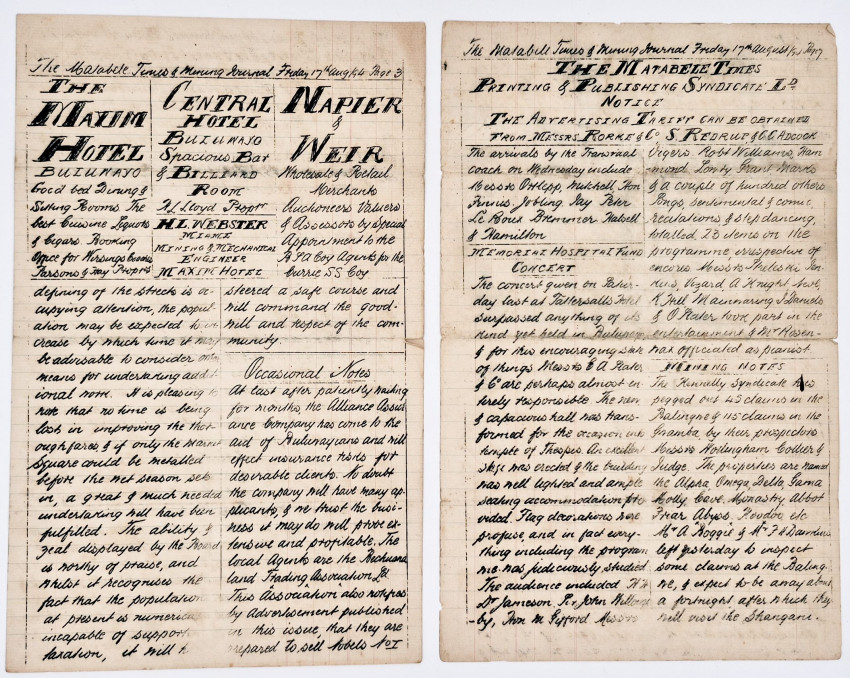 The Matabele Times & Mining Journal Friday 17th Aug/94 Page 3
THE
MAXIM
HOTEL
BULUWAYO
Good bed Dining &
Sitting Rooms The
best Cuisine Liquors
& Cigars. Booking
Office for
Parsons & May Proprts
CENTRAL
HOTEL
BULUWAYO
Spacious Bar
& BILLIARD
ROOM
Lloyd Proptr
H.L. WEBSTER
MINING & MECHANICAL
ENGINEER
MAXIM HOTEL
NAPIER
&
WEIR
Wholesale & Retail
Merchants
Auctioneers Valuers
& Assessors by Special
Appointment to the
B.S.A Coy Agents for the
Currie SS Coy
defining of the streets is oc-
cupying attention, the popul-
ation may be expected to in-
crease by which time it may
be advisable to consider
means for undertaking addit-
ional work. It is pleasing to
note that no time is being
lost in improving the thor-
oughfares, & if only the Market
Square could be metalled
before the wet season sets
in, a great & much needed
undertaking will have been
fulfilled. The ability &
zeal displayed by the Board
is worthy of praise, and
whilst it recognises the
fact that the population
at present is numerica
incapable of support
taxation, it will
steered a safe course and
will command the good-
will and respect of the com-
munity.
Occasional Notes
At last after patiently waiting
for months, the Alliance Assur-
ance Company has come to the
aid of Buluwayans and will
effect insurance risks for
desirable clients. No doubt
the company will have many ap-
plicants, & we trust the busi-
ness it may do will prove ex-
tensive and profitable. The
local Agents are the Bechuana
land Trading Association Ld.
This Association also notifies
by Advertisement published
in this issue, that they are
prepared to sell Nobels No I
The Matabele Times & Mining Journal Friday 17th August/94 Page 7
THE MATABELE TIMES
PRINTING & PUBLISHING SYNDICATE LD
NOTICE
THE ADVERTISING TARIFF CAN BE OBTAINED
FROM MESSRS RORKE & Co S. REDRUP & C. CADCOCK
The arrivals by the Transvaal
coach on Wednesday include
Messrs Ortlepp, Mitchell, Hon
Finnis, Jobling, Jay Peter
Le Roux Bremmer Halsell
& Hamilton
MEMORIAL HOSPITAL FUND
CONCERT
The concert given on Satur-
day last at Tattersalls Hotel
surpassed anything of its
kind yet held in Buluwayo
& for this encouraging state
of things Messrs E A Slater
& Co are perhaps almost en-
tirely responsible. The new
& capacious hall was trans-
formed for the occasion into
temple of Thespes. An excellent
stage was erected & the building
was well lighted and ample
seating accommodation pro-
vided. Flag decorations were
profuse, and in fact every-
thing including the program
me was judiciously studied
The audience included
Dr Jameson, Sir John Willough
-by, Hon M Gifford Messrs
Vigers Robt Williams, Ham
mond Lonty Grant Marks
& a couple of hundred others
Songs, sentimental & comic,
recitations & step dancing,
totalled 23 items on the
programme irrespective of
encores Messrs
A Knight
K Hill Mainwaring J Daniels
& O Slater took part in the
entertainment & Mr Rosen-
hat officiated as pianist
MINING NOTES
The Kennelly Syndicate has
pegged out 43 claims in the
Balingwe & 15 claims in the
Gwamba by their prospectors
Messrs Nottingham Collier &
Judge. The properties are named
the Alpha, Omega, Delta, Gama
Molly, Cave, Monastry Abbot
Friar, Abyss, Hoodoo etc
Mr A Boggie & Mr F H Dawkins
left yesterday to inspect
some claims at the Baling-
we, & expect to be away about
a fortnight after which they
will visit the Shangani.